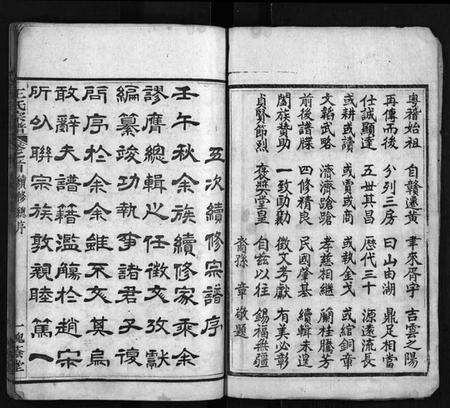 粤稽始祖 自贛遷黃 聿來胥宇 吉雲之陽
再傳而後 分列三房 曰山由湖 鼎足相當
仕誠顯達 五世其昌 歷代三十 源遠流長
或耕或讀 或賈或商 或執金戈 或綰銅章
文韜武略 濟濟蹌蹌 孝慈相繼 蘭桂騰芳
前後譜牒 四修精良 民國肇基 續輯未遑
闔族贊助 一致勷 徵文考獻 有美必彰
貞賢節烈 褒獎堂皇 自茲以往 錫福無疆
裔孫 章 敬題
五次續修宗譜序
壬午秋余族續修家乘余
謬膺總輯之任徵文攷獻
編纂竣功執事諸君子復
問序於余余雖不文其烏
敢辭夫譜籍濫觴於趙宋
所以聯宗族敦親睦篤一
王氏宗譜 卷之首 續修總序 一 槐蔭堂